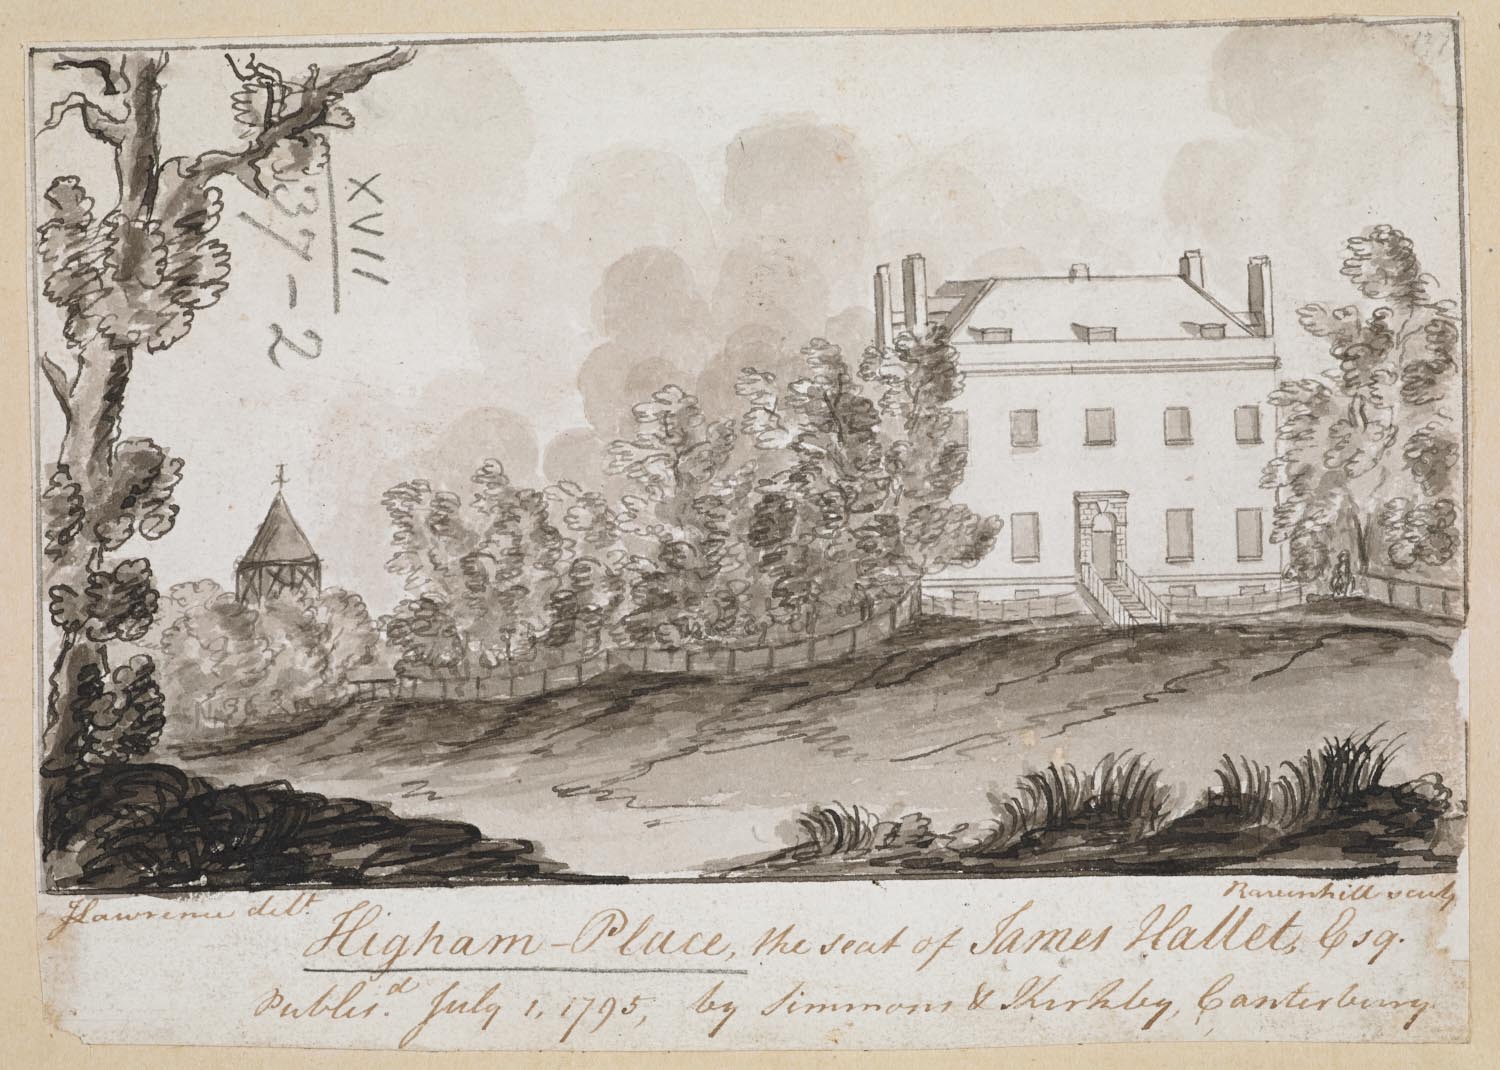 XVII
37-2
J Lawrence delt.
Ravenhill sculp
Higham-Place, the seat of James Hallet, Esq.
Publis.d July 1, 1795, by Simmons & Kirkby, Canterbury.